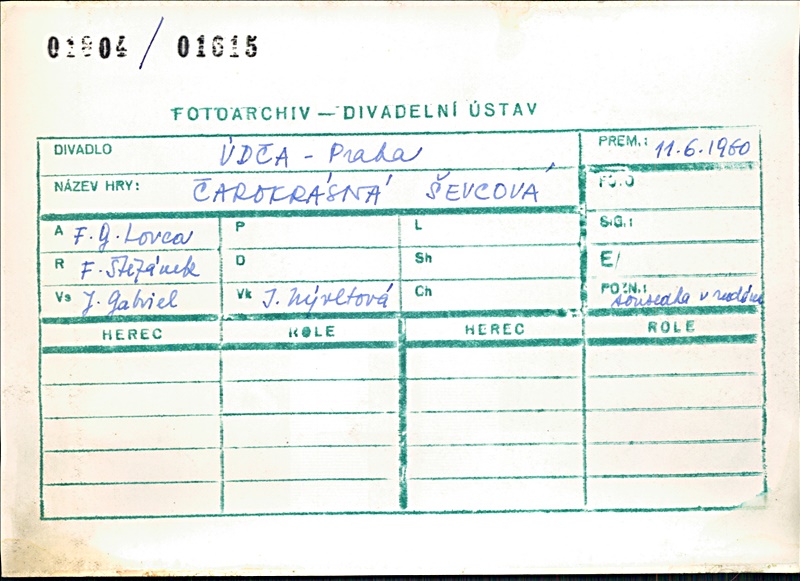 01804 / 01615
FOTOARCHIV — DIVADELNÍ ÚSTAV
DIVADLO ÚDČA - Praha PREM.: 11.6.1960
NÁZEV HRY: ČAROKRÁSNÁ ŠEVCOVÁ FOTO
A F. G. Lorca P L SIG.:
R F. Štěpánek D Sh E/
Vs J. Gabriel Vk J. Nývltová Ch POZN.: sousedka v
HEREC ROLE HEREC ROLE